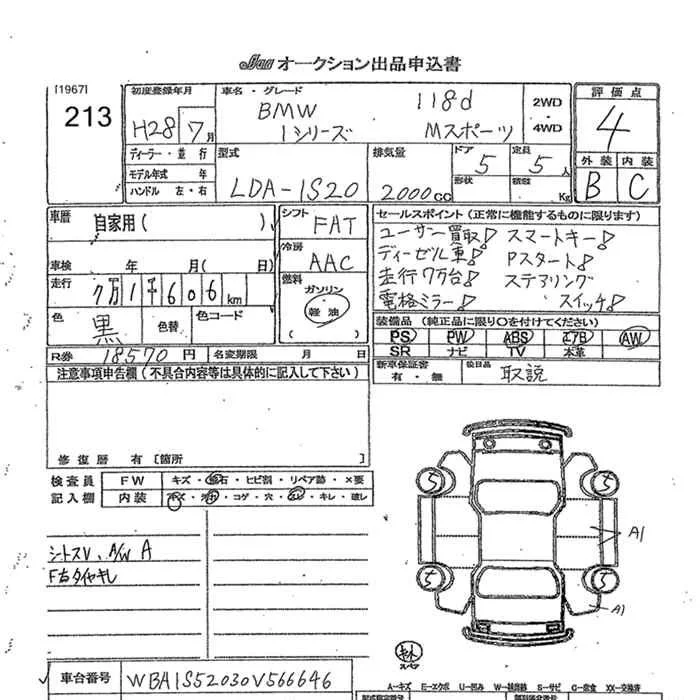 JBa オークション出品申込書
[1967]
213
初度登録年月
H28 7月
ディーラー・並 行
モデル年式 年
ハンドル 左・右
車名・グレード
BMW 118d
1シリーズ Mスポーツ
2WD
・
4WD
型式
LDA-1S20
排気量
2000cc
ドア 5
定員 5人
形状
積載 Kg
評価点
4
外装 内装
B C
車歴 自家用( )
車検 年 月( 日)
走行 7万1千606km
色 黒
色替
色コード
シフト FAT
冷房 AAC
燃料
ガソリン
軽油
( )
セールスポイント(正常に機能するものに限ります)
ユーザー買取! スマートキー!
ディーゼル車! Pスタート!
走行7万台! ステアリング
電格ミラー! スイッチ!
装備品(純正品に限り○を付けてください)
PS PW ABS エアB AW
SR ナビ TV 本革
R券 18570円
名変期限 月 日
新車保証書
有・無
後日品 取説
注意事項申告欄(不具合内容等は具体的に記入して下さい)
修復歴 有[箇所 ]
検査員
記入欄
FW キズ・飛石・ヒビ割・リペア跡・×要
内装 キズ・汚れ・コゲ・穴・スレ・キレ・破レ
シートスレ、A/W A
F右タイヤキレ
5 5
A1
5 5
A1
スペア
車台番号 WBA1S52030V566646
A-キズ E-エクボ U-凹み W-補修跡 S-サビ C-腐食 X-要交換 XX-交換済